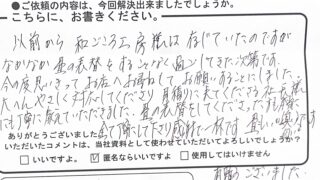 ●ご依頼の内容は、今回解決出来ましたでしょうか。
こちらに、お書きください。
以前から 和ごころ工房様は存じていたのですが
なかなか畳の表替をすることなく過ごしてきた次第です。
今回思いきってお店へお尋ねして、お願いすることにしました。
大へんやさしく対応してくださり 見積りに来てくださる
にも丁寧に教えていただきました。畳の表替をしてくださった
まで丁寧にして下さり感謝一杯です
ありがとうございました
いただいたコメントは、当社資料として使わせていただいてよろしいでしょうか？
□ いいですよ。 ☑ 匿名ならいいですよ □ 使用してはいけません
有難うございました